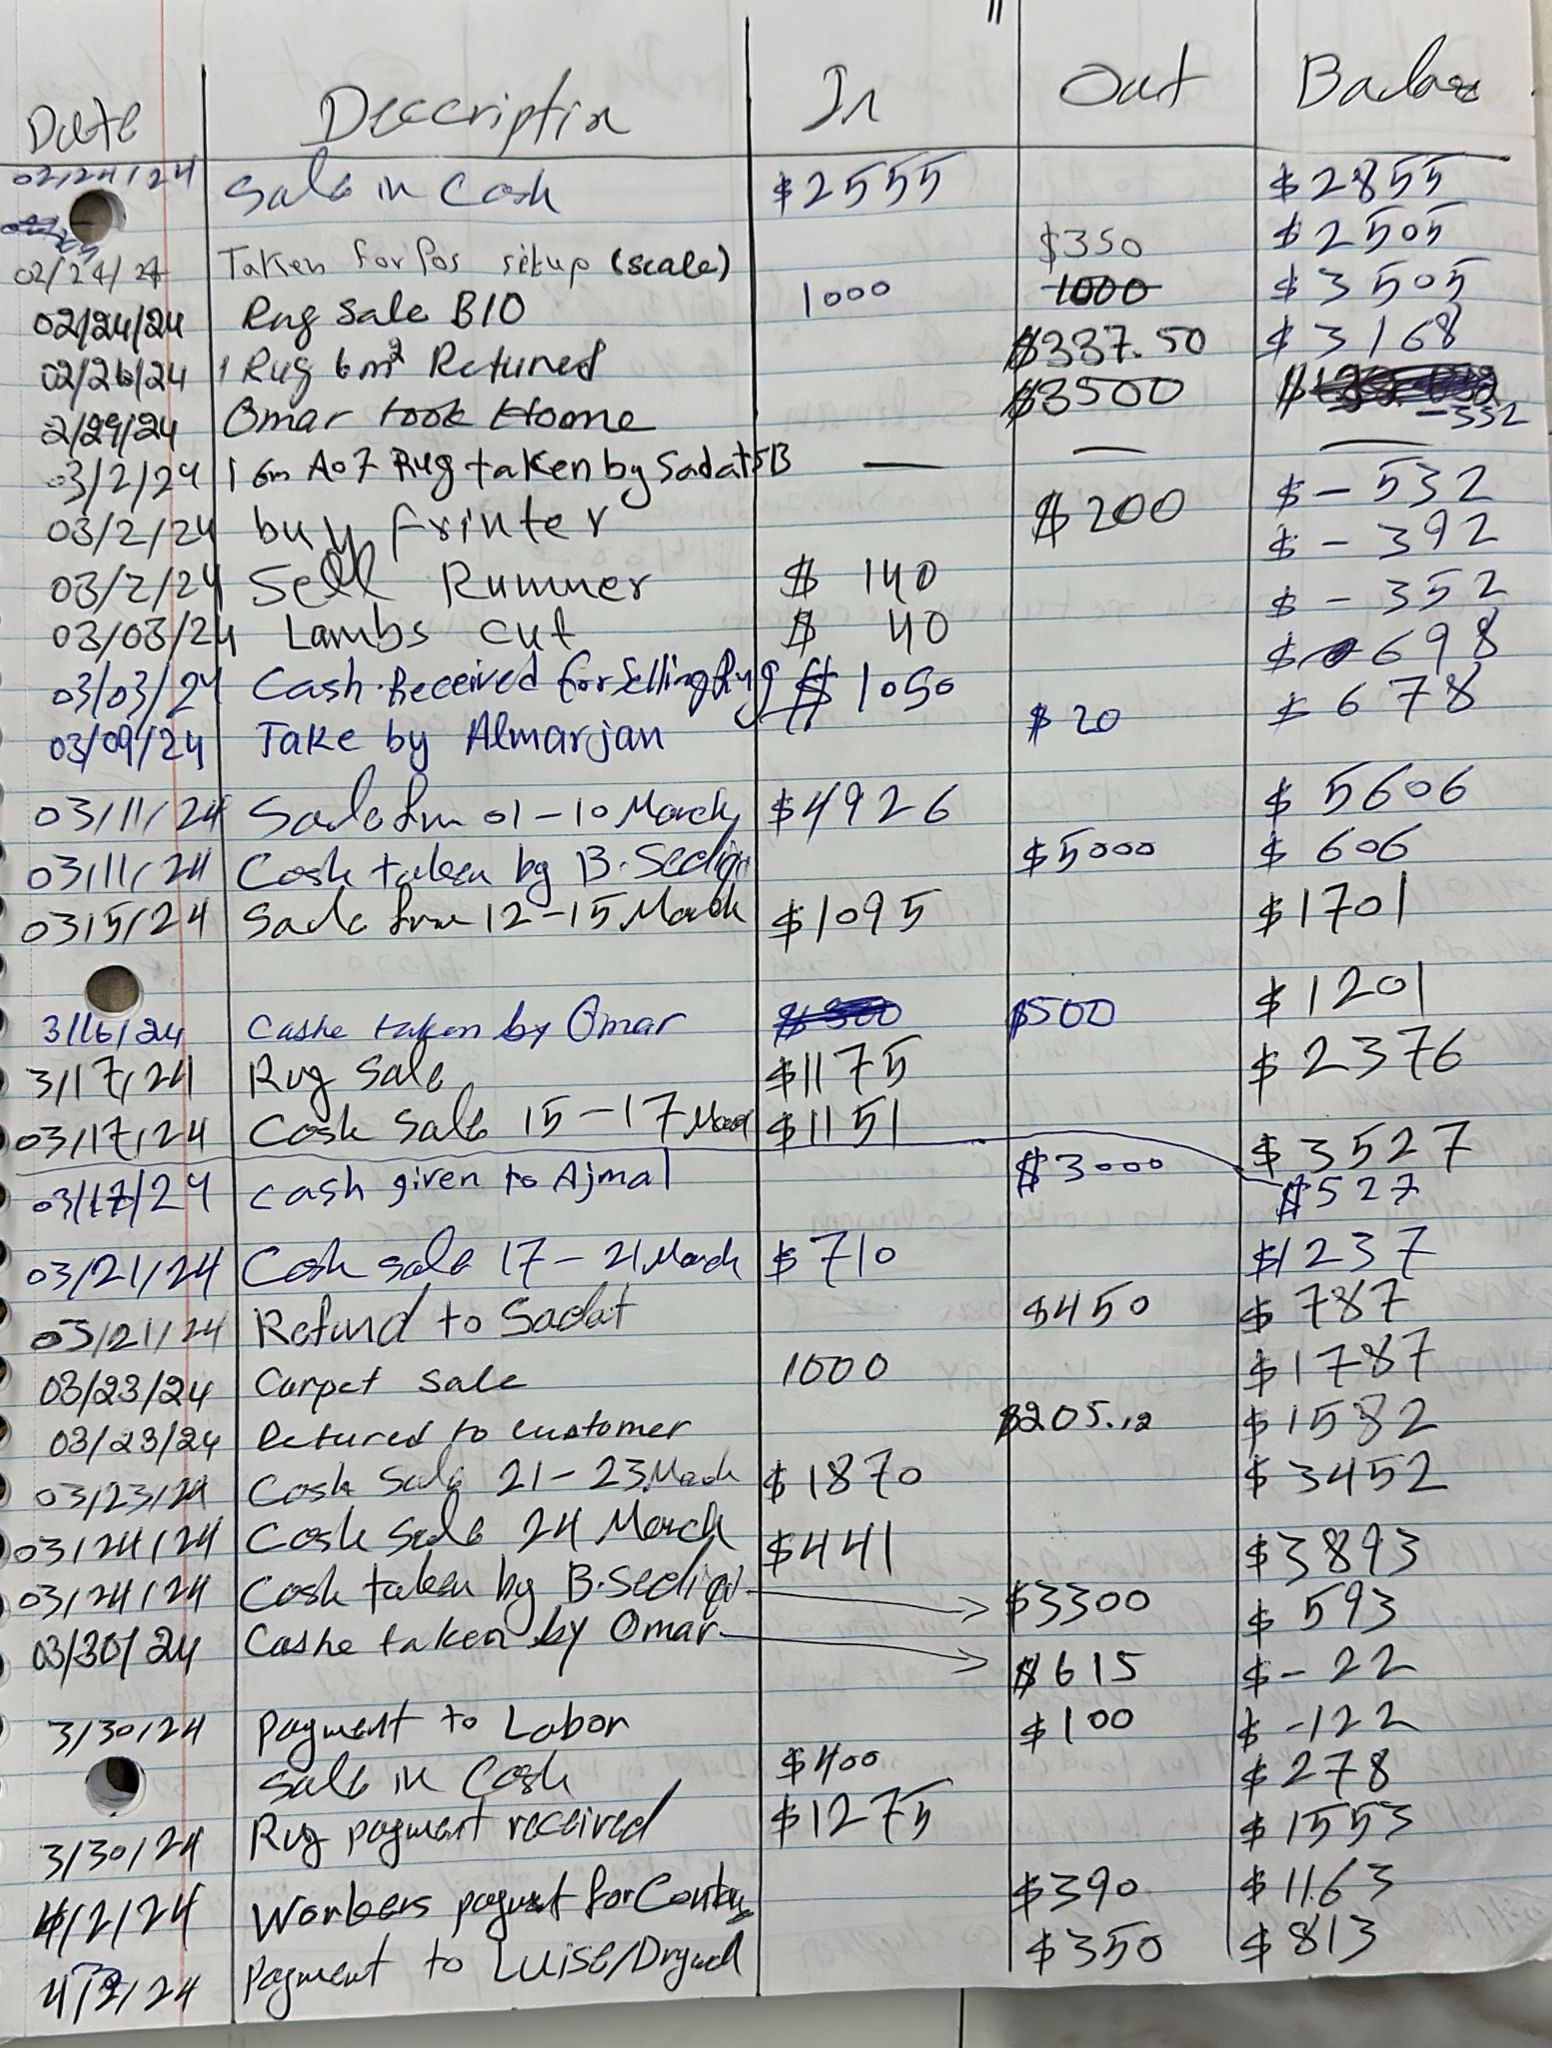 Date Descriptin In Out Balase
02/24/24 Sale in Cash $2555 $2855
02/24/24 Taken for Pos situp (scale) $350 $2505
02/24/24 Rug Sale B10 1000 1000 $3505
02/26/24 1 Rug 6m² Retuned $337.50 $3168
2/29/24 Omar took Home $3500 -332
03/2/24 1 6m A07 Rug taken by Sadat SB — — —
03/2/24 buy Frinter $200 $-532
03/2/24 Sell Rumner $140 $-392
03/03/24 Lambs cut $40 $-352
03/03/24 Cash Received for Selling Rug $1050 $698
03/09/24 Take by Almarjan $20 $678
03/11/24 Sale frm 01-10 March $4926 $5606
03/11/24 Cash taken by B. Sediqi $5000 $606
0315/24 Sale frm 12-15 March $1095 $1701
3/16/24 Cashe taken by Omar $300 $500 $1201
3/17/24 Rug Sale $1175 $2376
03/17/24 Cash Sale 15-17 March $1151 $3527
03/17/24 Cash given to Ajmal $3000 $527
03/21/24 Cash sale 17-21 March $710 $1237
03/21/24 Refund to Sadat $450 $787
03/23/24 Carpet sale 1000 $1787
03/23/24 Retured to customer $205.12 $1582
03/23/24 Cash Sale 21-23 March $1870 $3452
03/24/24 Cash Sale 24 March $441 $3893
03/24/24 Cash taken by B. Sediqi $3300 $593
03/30/24 Cashe taken by Omar $615 $-22
3/30/24 Payment to Labor $100 $-122
Sale in Cash $400 $278
3/30/24 Rug payment received $1275 $1553
4/2/24 Workers payment for $390 $1163
4/2/24 Payment to Luise/Drywall $350 $813